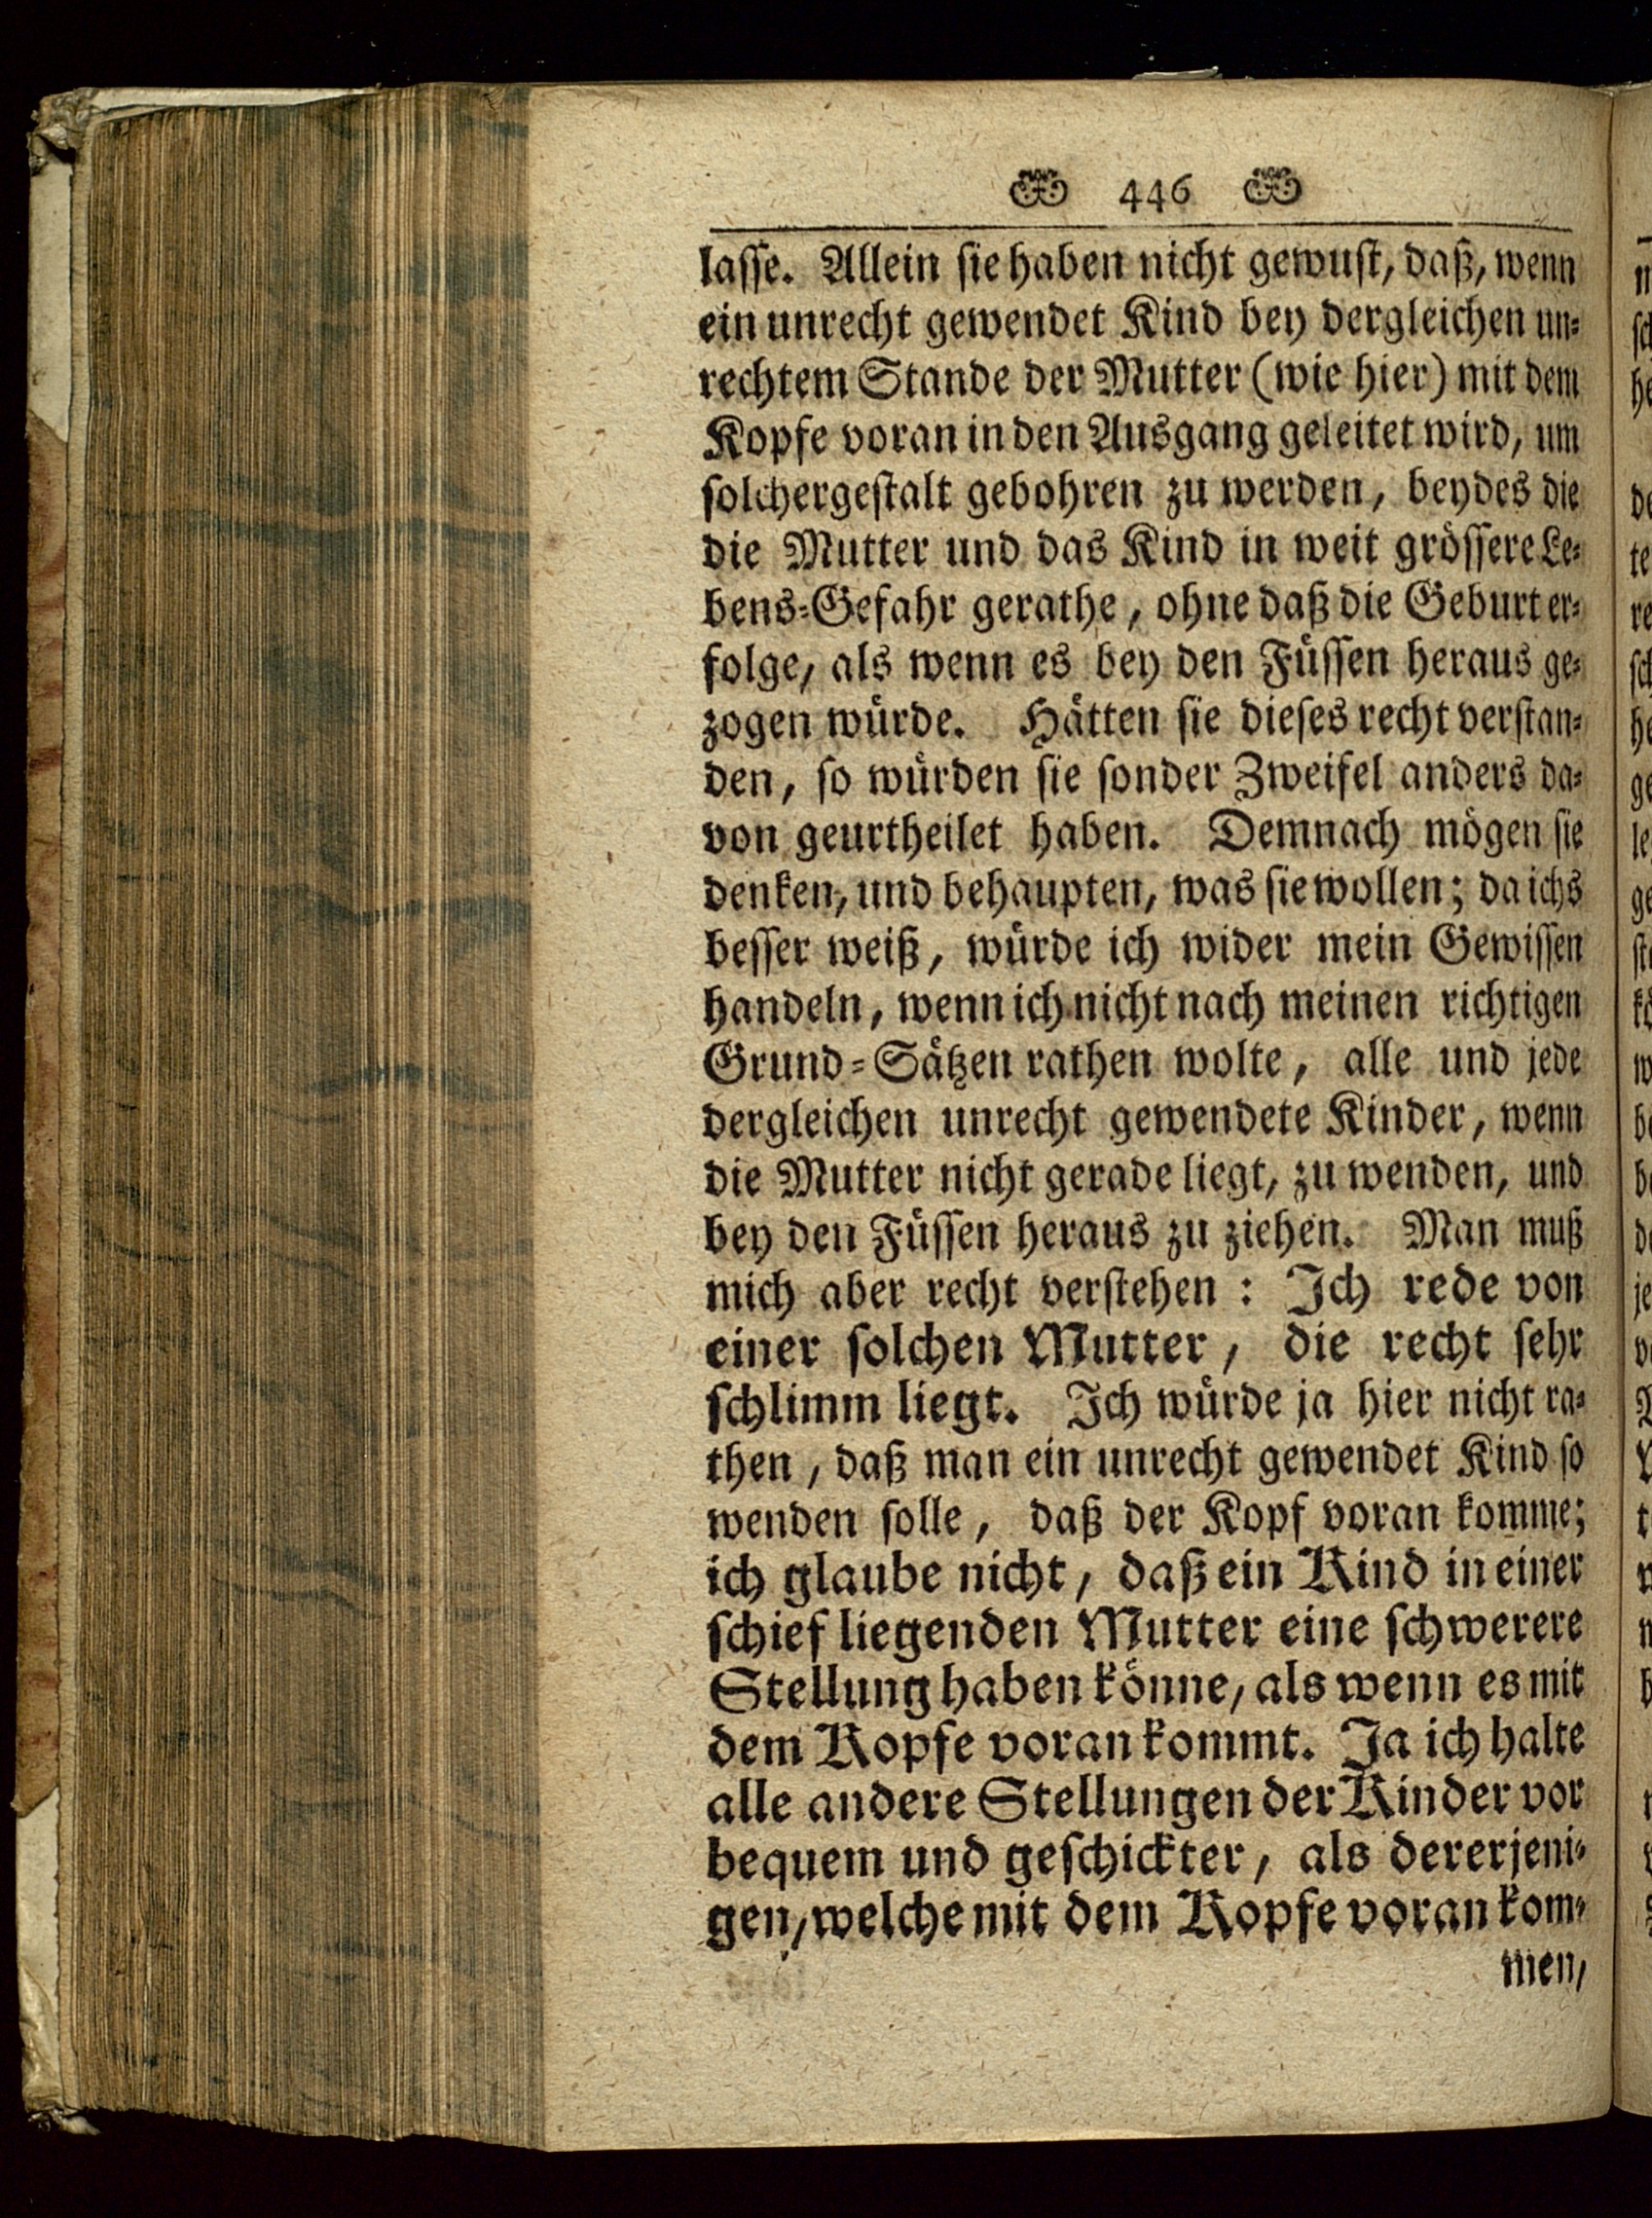 446
lasse. Allein sie haben nicht gewust, daß, wenn
ein unrecht gewendet Kind bey dergleichen un-
rechtem Stande der Mutter (wie hier) mit dem
Kopfe voran in den Ausgang geleitet wird, um
solchergestalt gebohren zu werden, beydes die
die Mutter und das Kind in weit grössere Le-
bens-Gefahr gerathe, ohne daß die Geburt er-
folge, als wenn es bey den Füssen heraus ge-
zogen würde. Hätten sie dieses recht verstan-
den, so würden sie sonder Zweifel anders da-
von geurtheilet haben. Demnach mögen sie
denken, und behaupten, was sie wollen; da ichs
besser weiß, würde ich wider mein Gewissen
handeln, wenn ich nicht nach meinen richtigen
Grund-Sätzen rathen wolte, alle und jede
dergleichen unrecht gewendete Kinder, wenn
die Mutter nicht gerade liegt, zu wenden, und
bey den Füssen heraus zu ziehen. Man muß
mich aber recht verstehen: Ich rede von
einer solchen Mutter, die recht sehr
schlimm liegt. Ich würde ja hier nicht ra-
then, daß man ein unrecht gewendet Kind so
wenden solle, daß der Kopf voran komme;
ich glaube nicht, daß ein Kind in einer
schief liegenden Mutter eine schwerere
Stellung haben könne, als wenn es mit
dem Kopfe voran kommt. Ja ich halte
alle andere Stellungen der Kinder vor
bequem und geschickter, als dererjeni-
gen, welche mit dem Kopfe voran kom-
men,